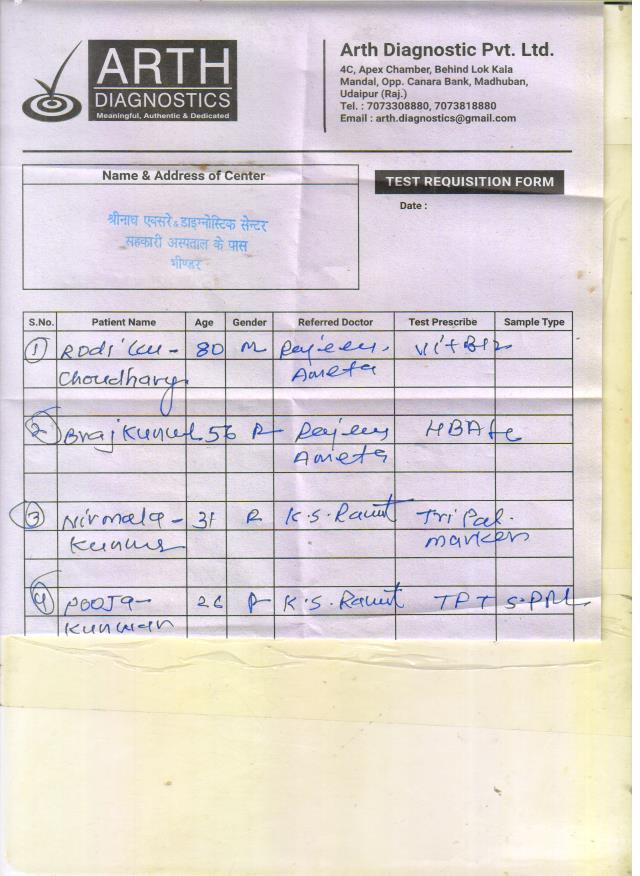 ARTH
DIAGNOSTICS
Meaningful, Authentic & Dedicated
Arth Diagnostic Pvt. Ltd.
4C, Apex Chamber, Behind Lok Kala
Mandal, Opp. Canara Bank, Madhuban,
Udaipur (Raj.)
Tel. : 7073308880, 7073818880
Email : arth.diagnostics@gmail.com
Name & Address of Center
TEST REQUISITION FORM
Date :
श्रीनाथ एक्सरे & डाइग्नोस्टिक सेन्टर
सहकारी अस्पताल के पास
भीण्डर
S.No. Patient Name Age Gender Referred Doctor Test Prescribe Sample Type
1 80 M Vit B12
Choudhary Ameta
2 56 HBA1c
Ameta
3 Nirmala - 31 K.S. Tripal.
marker
4 Pooja - 26 K.S.
Kunwar